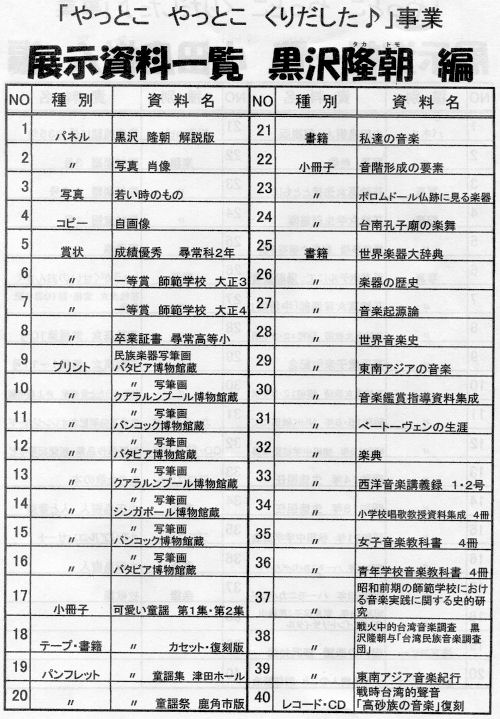 「やっとこ やっとこ くりだした♪」事業
展示資料一覧 黒沢隆朝 編
タカ トモ
NO 種別 資料名
1 パネル 黒沢 隆朝 解説版
2 〃 写真 肖像
3 写真 若い時のもの
4 コピー 自画像
5 賞状 成績優秀 尋常科2年
6 〃 一等賞 師範学校 大正3
7 〃 一等賞 師範学校 大正4
8 〃 卒業証書 尋常高等小
9 プリント 民族楽器写筆画
バタビア博物館蔵
10 〃 〃 写筆画
クアラルンプール博物館蔵
11 〃 〃 写筆画
バンコック博物館蔵
12 〃 〃 写筆画
バタビア博物館蔵
13 〃 〃 写筆画
クアラルンプール博物館蔵
14 〃 〃 写筆画
シンガポール博物館蔵
15 〃 〃 写筆画
バンコック博物館蔵
16 〃 〃 写筆画
バタビア博物館蔵
17 小冊子 可愛い童謡 第1集・第2集
18 テープ・書籍 〃 カセット・復刻版
19 パンフレット 〃 童謡集 津田ホール
20 〃 〃 童謡祭 鹿角市版
NO 種別 資料名
21 書籍 私達の音楽
22 小冊子 音階形成の要素
23 〃 ボロムドール仏跡に見る楽器
24 〃 台南孔子廟の楽舞
25 書籍 世界楽器大辞典
26 〃 楽器の歴史
27 〃 音楽起源論
28 〃 世界音楽史
29 〃 東南アジアの音楽
30 〃 音楽鑑賞指導資料集成
31 〃 ベートーヴェンの生涯
32 〃 楽典
33 〃 西洋音楽講義録 1・2号
34 〃 小学校唱歌教授資料集成 4冊
35 〃 女子音楽教科書 4冊
36 〃 青年学校音楽教科書 4冊
37 〃 昭和前期の師範学校における音楽実践に関する史的研究
38 〃 戦火中的台湾音楽調査 黒沢隆朝与「台湾民族音楽調査団」
39 〃 東南アジア音楽紀行
40 レコード・CD 戦時台湾的聲音
「高砂族の音楽」復刻